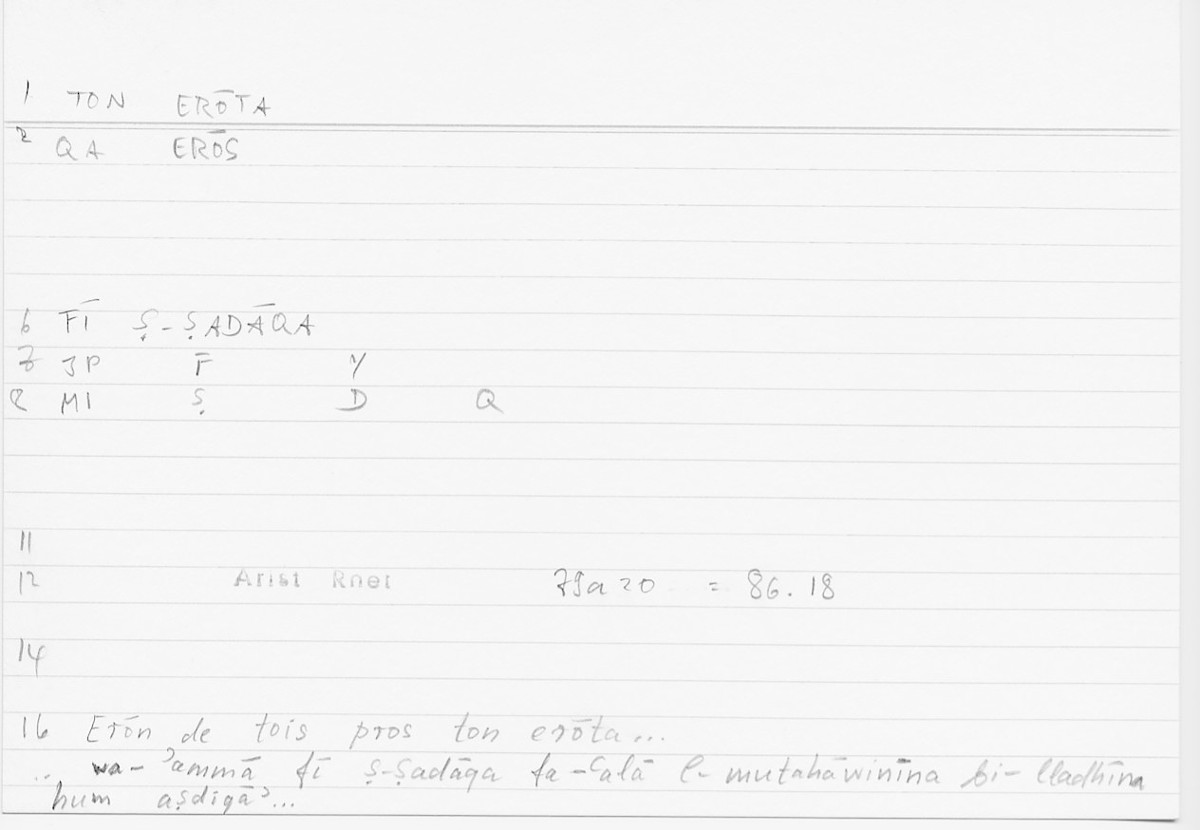 1 TON ERŌTA
2 QA ERŌS
6 FĪ Ṣ-ṢADĀQA
7 JP F Y
8 MI Ṣ D Q
11
12 Arist Rhet 79a20 = 86.18
14
16 Erōn de tois pros ton erōta...
.. wa-ʾammā fī ṣ-ṣadāqa fa-ʿalā l-mutahāwinīna bi-lladhīna
hum aṣdiqāʾ...